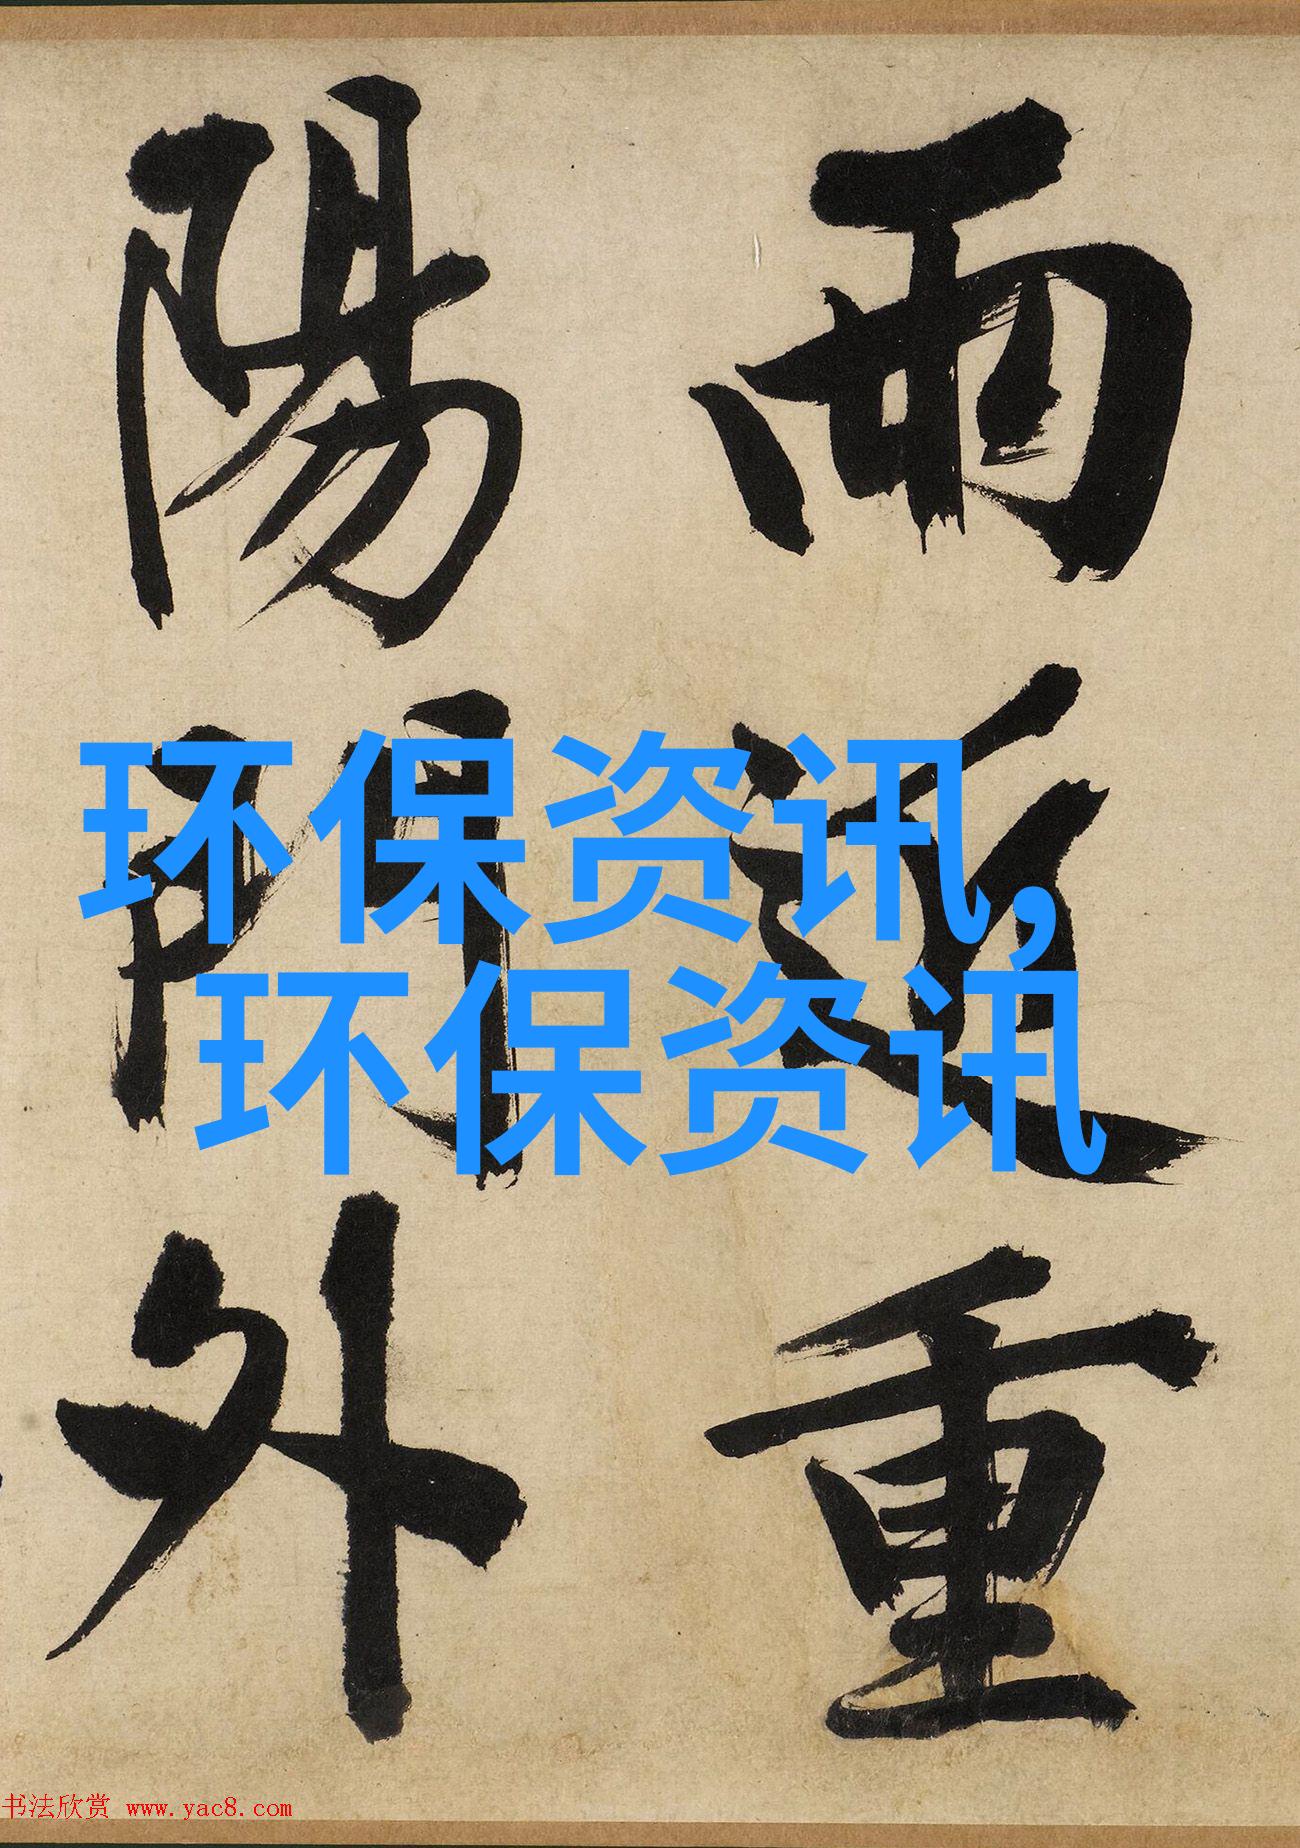 雨近重
陽門外
环保资讯,
环保资讯
书法欣赏 www.yac8.com